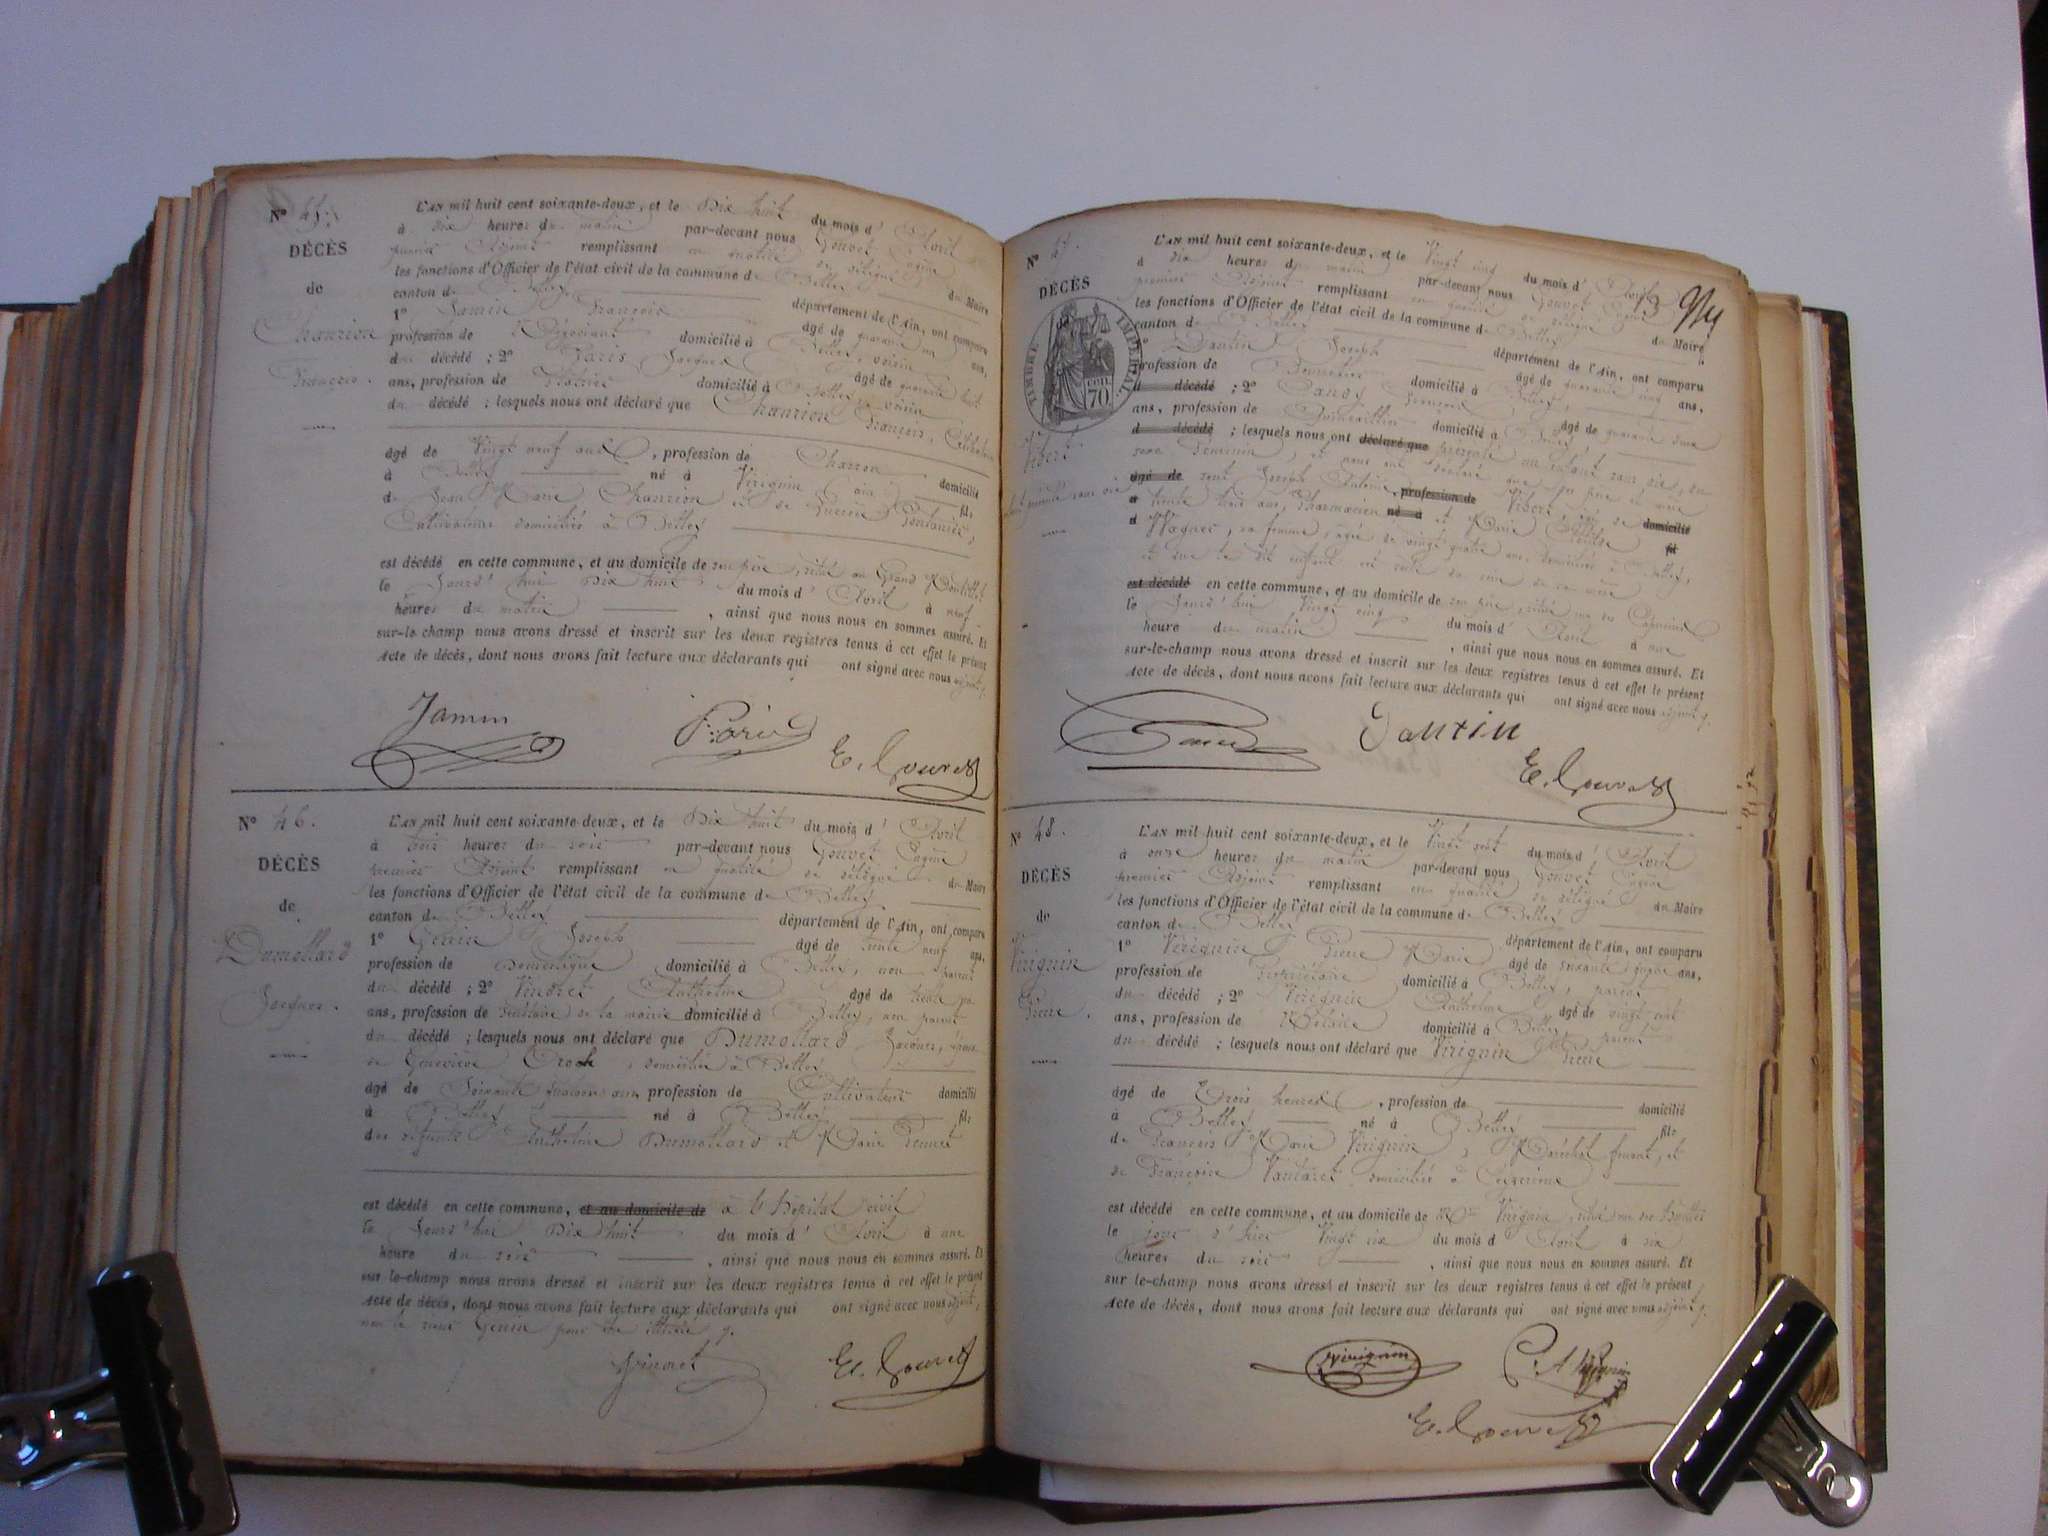 Nº 45.
DÉCÈS
de
Chanrion
François.
L'AN mil huit cent soixante-deux, et le Dix huit du mois d' Avril
à dix heures du matin par-devant nous Gouvet Eugène
premier Adjoint remplissant en qualité de délégué du Maire
les fonctions d'Officier de l'état civil de la commune de Belley
canton de Belley département de l'Ain, ont comparu
1º Jamin François âgé de quarante un ans,
profession de Négociant domicilié à Belley, voisin
du décédé ; 2º Paris Jacques âgé de quarante huit
ans, profession de Plâtrier domicilié à Belley, voisin
du décédé ; lesquels nous ont déclaré que Chanrion François, Célibataire
âgé de Vingt neuf ans, profession de Charron domicilié
à Belley né à Virignin (Ain) fils
de Jean Marie Chanrion et de
Cultivateurs domiciliés à Belley
est décédé en cette commune, et au domicile de son père, situé au Grand
le Jourd'hui Dix huit du mois d' Avril à neuf
heures du matin , ainsi que nous nous en sommes assuré. Et
sur-le champ nous avons dressé et inscrit sur les deux registres tenus à cet effet le présent
Acte de décès, dont nous avons fait lecture aux déclarants qui ont signé avec nous adjoint
Jamin Paris E. Gouvet
Nº 46.
DÉCÈS
de
Dumollard
Jacques.
L'AN mil huit cent soixante-deux, et le Dix huit du mois d' Avril
à trois heures du soir par-devant nous Gouvet Eugène
premier Adjoint remplissant en qualité de délégué du Maire
les fonctions d'Officier de l'état civil de la commune de Belley
canton de Belley département de l'Ain, ont comparu
1º Génin Joseph âgé de trente neuf ans,
profession de Domestique domicilié à Belley, non parent
du décédé ; 2º Vindret Anthelme âgé de trente
ans, profession de Secrétaire de la mairie domicilié à Belley, non parent
du décédé ; lesquels nous ont déclaré que Dumollard Jacques, époux
de Geneviève domiciliée à Belley
âgé de Soixante quatorze ans, profession de Cultivateur domicilié
à Belley né à Belley fils
des défunts Anthelme Dumollard et Marie
est décédé en cette commune, et au domicile de à l'Hôpital civil
le Jourd'hui Dix huit du mois d' Avril à une
heure du soir , ainsi que nous nous en sommes assuré. Et
sur le-champ nous avons dressé et inscrit sur les deux registres tenus à cet effet le présent
Acte de décès, dont nous avons fait lecture aux déclarants qui ont signé avec nous adjoint,
non le sieur Génin pour être illétré
Vindret E. Gouvet
Nº 47.
DÉCÈS
TIMBRE IMPÉRIAL
70 cen.
Vibert
L'AN mil huit cent soixante-deux, et le Vingt cinq du mois d' Avril
à dix heures du matin par-devant nous Gouvet Eugène
premier Adjoint remplissant en qualité de délégué du Maire
les fonctions d'Officier de l'état civil de la commune de Belley
canton de Belley département de l'Ain, ont comparu
1º Dantin Joseph âgé de quarante cinq ans,
profession de domicilié à Belley,
d décédé ; 2º François âgé de quarante deux
ans, profession de Quincaillier domicilié à Belley
d décédé ; lesquels nous ont déclaré que présenté un enfant sans vie, du
sexe féminin, et nous ont déclaré que
âgé de sont Joseph Antoine profession de Vibert, âgé de domicilié
à trente trois ans, Pharmacien né à et Marie fil
d Wagner, sa femme, âgée de vingt quatre ans, domiciliés à Belley,
et que le dit enfant est sorti du sein de sa mère
est décédé en cette commune, et au domicile de son père, situé rue des Capucins
le Jourd'hui Vingt cinq du mois d' Avril à une
heure du matin , ainsi que nous nous en sommes assuré. Et
sur-le-champ nous avons dressé et inscrit sur les deux registres tenus à cet effet le présent
Acte de décès, dont nous avons fait lecture aux déclarants qui ont signé avec nous adjoint
Dantin
E. Gouvet
Nº 48.
DÉCÈS
de
Virignin
Pierre.
L'AN mil huit cent soixante-deux, et le Vingt sept du mois d' Avril
à onze heures du matin par-devant nous Gouvet Eugène
premier Adjoint remplissant en qualité de délégué du Maire
les fonctions d'Officier de l'état civil de la commune de Belley
canton de Belley département de l'Ain, ont comparu
1º Virignin Pierre Marie âgé de soixante quatre ans,
profession de Propriétaire domicilié à Belley, parent
du décédé ; 2º Virignin Anthelme âgé de vingt
ans, profession de Notaire domicilié à Belley parent
du décédé ; lesquels nous ont déclaré que Virignin Pierre
âgé de Trois heures , profession de domicilié
à Belley né à Belley fils
de François Marie Virignin, Maréchal ferrant, et
de Françoise domiciliés à Ceyzérieu
est décédé en cette commune, et au domicile de Mr Virignin, situé rue des
le jour d'hier Vingt six du mois d' Avril à six
heures du soir , ainsi que nous nous en sommes assuré. Et
sur-le-champ nous avons dressé et inscrit sur les deux registres tenus à cet effet le présent
Acte de décès, dont nous avons fait lecture aux déclarants qui ont signé avec nous adjoint
Virignin
E. Gouvet